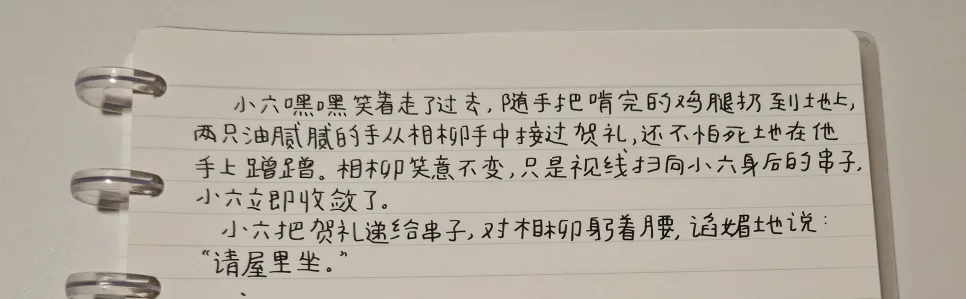 小六嘿嘿笑着走了过去，随手把啃完的鸡腿扔到地上，
两只油腻腻的手从相柳手中接过贺礼，还不怕死地在他
手上蹭蹭。相柳笑意不变，只是视线扫向小六身后的串子，
小六立即收敛了。
小六把贺礼递给串子，对相柳躬着腰，谄媚地说：
“请屋里坐。”